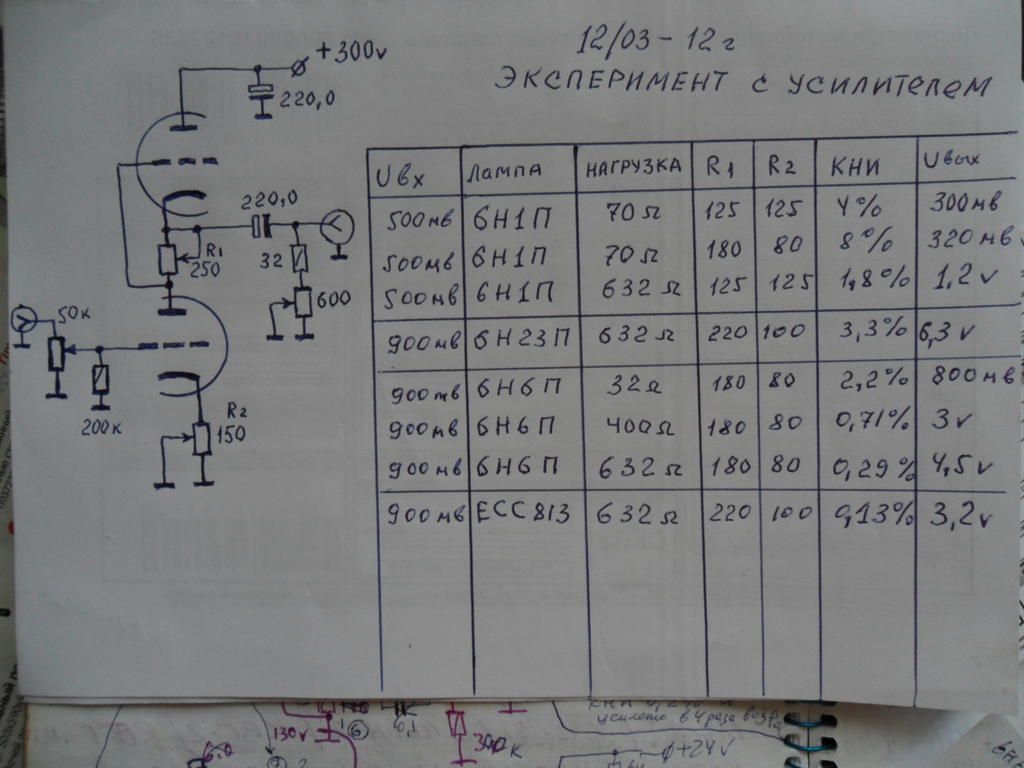 12/03-12г
ЭКСПЕРИМЕНТ С УСИЛИТЕЛЕМ
+300v
220,0
220,0
R1
250
32
600
50к
200к
R2
150
Uвх ЛАМПА НАГРУЗКА R1 R2 КНИ Uвых
500мв 6Н1П 70Ω 125 125 4% 300мв
500мв 6Н1П 70Ω 180 80 8% 320мв
500мв 6Н1П 632Ω 125 125 1,8% 1,2v
900мв 6Н23П 632Ω 220 100 3,3% 6,3v
900мв 6Н6П 32Ω 180 80 2,2% 800мв
900мв 6Н6П 400Ω 180 80 0,71% 3v
900мв 6Н6П 632Ω 180 80 0,29% 4,5v
900мв ECC813 632Ω 220 100 0,13% 3,2v
130v
6
0,1
300к
усилето в 4 раза
+24V
6.0